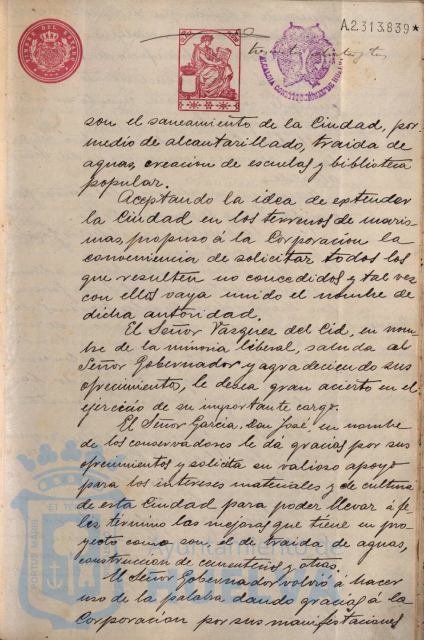 A.2.313.839*
son el saneamiento de la Ciudad, por
medio de alcantarillado, traida de
aguas, creacion de escuelas y biblioteca
popular.
Aceptando la idea de extender
la Ciudad en los terrenos de maris-
mas, propuso á la Corporación la
conveniencia de solicitar todos los
que resulten no concedidos y tal vez
con ellos vaya unido el nombre de
dicha autoridad.
El Señor Vázquez del Cid, en nom-
bre de la minoria liberal, saluda al
Señor Gobernador y agradeciendo sus
ofrecimientos, le desea gran acierto en el
ejercicio de su importante cargo.
El Señor Garcia, Don José, en nombre
de los conservadores le dá gracias por sus
ofrecimientos y solicita su valioso apoyo
para los intereses materiales y de cultura
de esta Ciudad para poder llevar á fe-
liz termino las mejoras que tiene en pro-
yecto como son, el de traida de aguas,
construccion de cementerio y otras.
El Señor Gobernador volvió á hacer
uso de la palabra dando gracias á la
Corporación por sus manifestaciones
Ayuntamiento de
PORTUS MARIS
ET TE